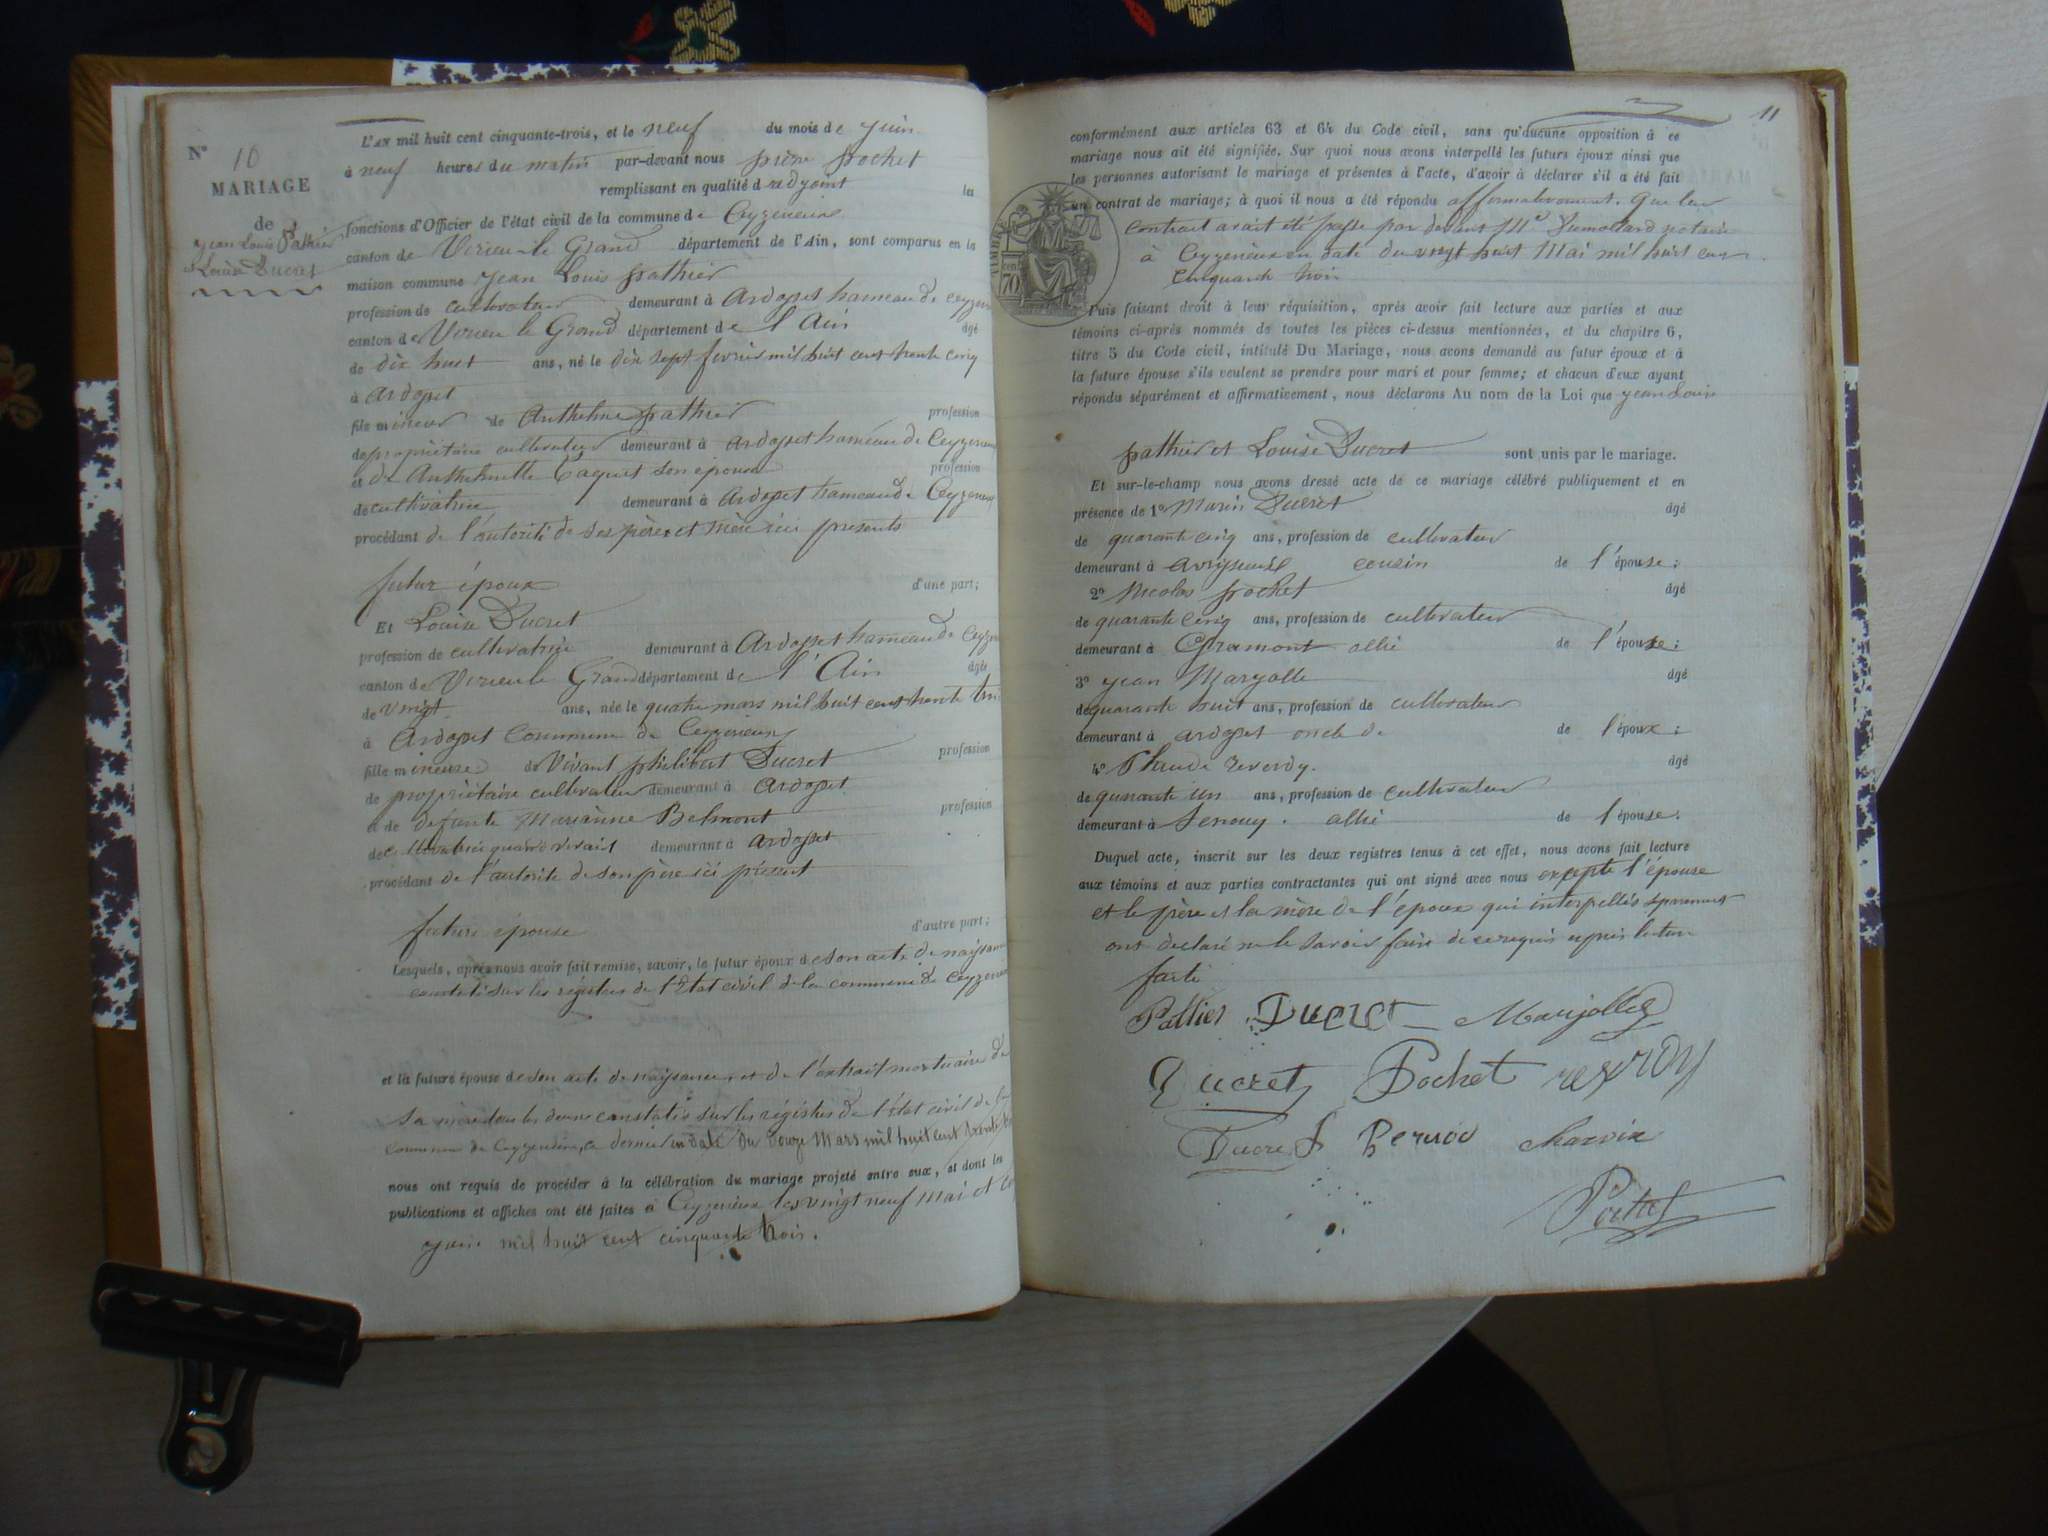 N° 10
MARIAGE
de
Jean Louis Pathier
et Louise Ducret
L'AN mil huit cent cinquante-trois, et le neuf du mois de juin
à neuf heures du matin par-devant nous pochet
remplissant en qualité d'adjoint les
fonctions d'Officier de l'état civil de la commune de Ceyzerieux
canton de Virieu-le Grand département de l'Ain, sont comparus en la
maison commune Jean Louis pathier
profession de cultivateur demeurant à Ardosset hameau de Ceyzerieux
canton de Virieu le Grand département de l'Ain âgé
de dix huit ans, né le dix sept fevrier mil huit cent trente cinq
à Ardosset
fils mineur de Anthelme pathier profession
de propriétaire cultivateur demeurant à ardosset hameau de Ceyzerieux
et de Anthelmette son épouse profession
de cultivatrice demeurant à Ardosset hameau de Ceyzerieux
procédant de l'autorité de ses père et mère ici présents
futur époux d'une part;
Et Louise Ducret
profession de cultivatrice demeurant à Ardosset hameau de Ceyzerieux
canton de Virieu le Grand département de l'Ain âgée
de vingt ans, née le quatre mars mil huit cent trente trois
à Ardosset Commune de Ceyzerieux
fille mineure de Vivant philibert Ducret profession
de propriétaire cultivateur demeurant à Ardosset
et de défunte Marianne Belmont profession
de cultivatrice quand vivait demeurant à ardosset
procédant de l'autorité de son père ici présent
future épouse d'autre part;
Lesquels, après nous avoir fait remise, savoir, le futur époux de son acte de naissance
constaté sur les registres de l'Etat civil de la commune de Ceyzerieux
et la future épouse de son acte de naissance et de l'extrait mortuaire de
sa mère tous les deux constatés sur les registres de l'état civil de la
commune de Ceyzerieux, ce dernier en date du douze Mars mil huit cent trente
nous ont requis de procéder à la célébration du mariage projeté entre eux, et dont les
publications et affiches ont été faites à Ceyzerieux les vingt neuf mai et
juin mil huit cent cinquante trois.
11
conformément aux articles 63 et 64 du Code civil, sans qu'aucune opposition à ce
mariage nous ait été signifiée. Sur quoi nous avons interpellé les futurs époux ainsi que
les personnes autorisant le mariage et présentes à l'acte, d'avoir à déclarer s'il a été fait
un contrat de mariage; à quoi il nous a été répondu affirmativement. que leur
contrat avait été passé par devant Me Dumollard notaire
à Ceyzerieux en date du vingt huit Mai mil huit cent
cinquante trois
TIMBRE
70
Puis faisant droit à leur réquisition, après avoir fait lecture aux parties et aux
témoins ci-après nommés de toutes les pièces ci-dessus mentionnées, et du chapitre 6,
titre 5 du Code civil, intitulé Du Mariage, nous avons demandé au futur époux et à
la future épouse s'ils veulent se prendre pour mari et pour femme; et chacun d'eux ayant
répondu séparément et affirmativement, nous déclarons Au nom de la Loi que Jean Louis
pathier et Louise Ducret sont unis par le mariage.
Et sur-le-champ nous avons dressé acte de ce mariage célébré publiquement et en
présence de 1° Marin Ducret âgé
de quarante cinq ans, profession de cultivateur
demeurant à cousin de l'épouse;
2° Nicolas pochet âgé
de quarante cinq ans, profession de cultivateur
demeurant à Gramont allié de l'épouse;
3° Jean Marjolle âgé
de quarante huit ans, profession de cultivateur
demeurant à ardosset oncle de de l'époux;
4° Claude reverdy. âgé
de quarante un ans, profession de cultivateur
demeurant à Senouy. allié de l'épouse.
Duquel acte, inscrit sur les deux registres tenus à cet effet, nous avons fait lecture
aux témoins et aux parties contractantes qui ont signé avec nous excepté l'épouse
et le père et la mère de l'époux qui interpellés séparement
ont declaré ne le savoir faire de ce requis après lecture
faite
Pallier Ducret Marjollez
Ducret Pochet
Ducret
Pochet